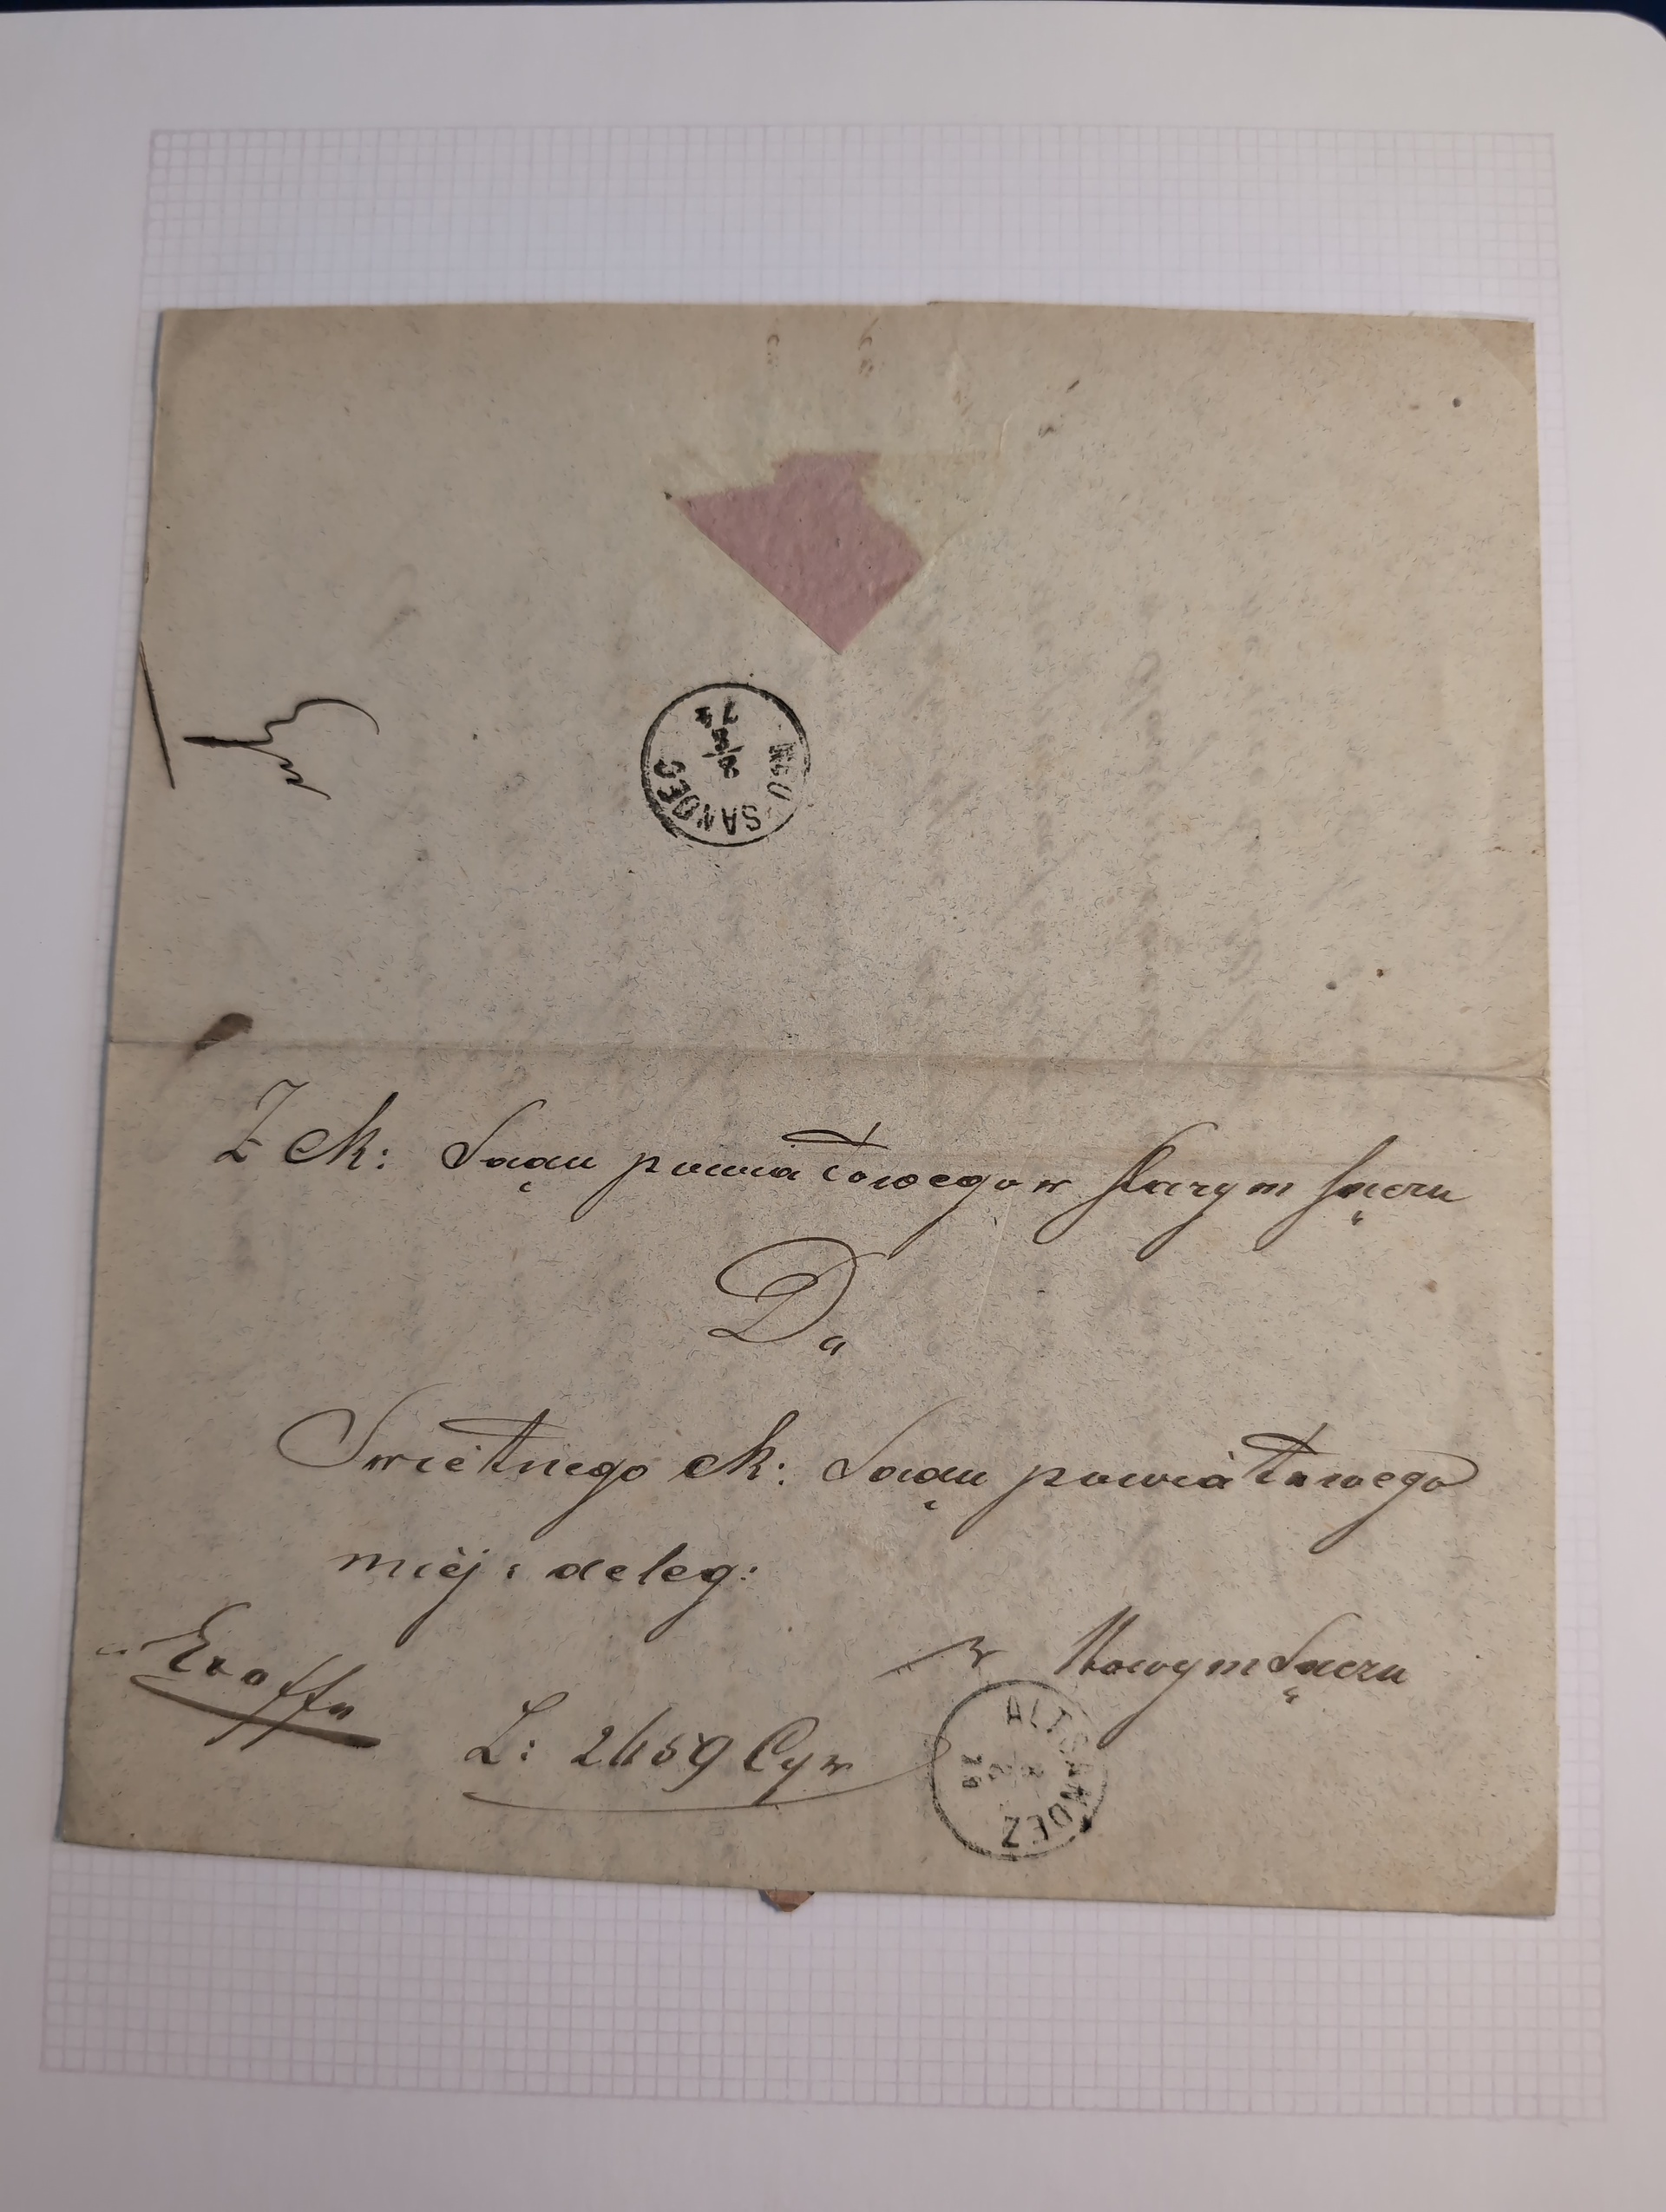 NEU SANDEC
2/8
74
Z ck: Sądu powiatowego w Starym Sączu
Do
Swietnego ck: Sądu powiatowego
miej: deleg:
w Nowym Sączu
Exoffo
L: 2659 Cyw
ALTSANDEZ
74